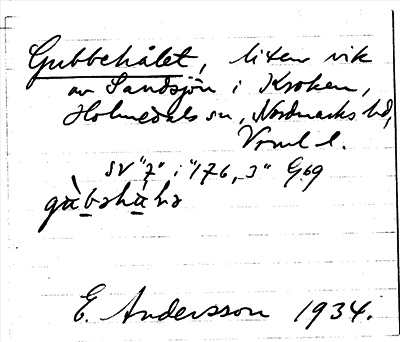 Gubbehålet, liten vik
av Sandsjön i Kroken,
Holmedals sn, Nordmarks hd,
Vrml l.
SV "7" i "176,3" G69
gàbɘhàlɘ
E. Andersson 1934.